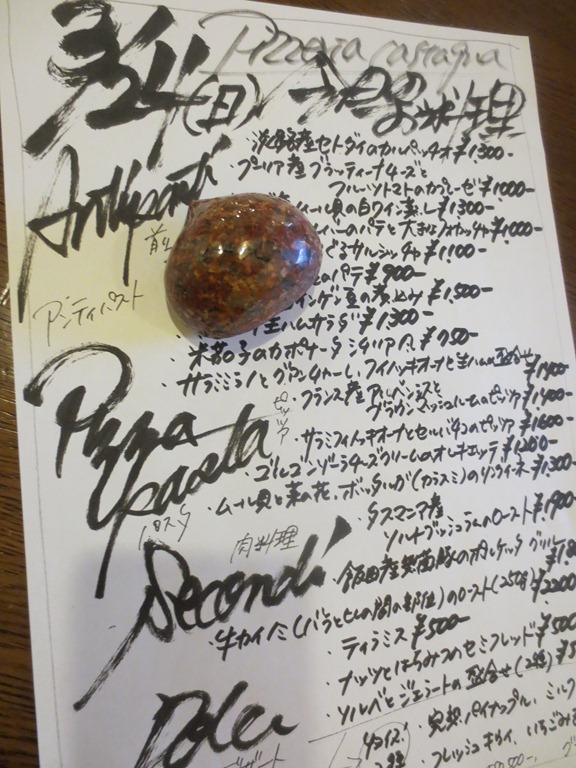 Pizzeria castagna
3/24(日) 今日のお料理
Antipasti
前
アンティパスト
淡路産セトダイのカルパッチオ ¥1300-
・プーリア産ブラッティーナチーズと
フルーツトマトのカプレーゼ ¥1000-
ムール貝の白ワイン蒸し ¥1300-
バーのパテと大きなフォカッチャ ¥1000-
サルシッチャ ¥1100-
のパテ ¥900-
インゲン豆の煮込み ¥1,500-
生ハムサラダ ¥1300-
・米茄子のカポナータ シチリア風 ¥750-
・サラミミラノとグアンチャーレ、フィノッキオーナと生ハムの盛合せ ¥1400-
Pizza
ピッツァ
pasta
パスタ
・フランス産アルベンスと
ブラウンマッシュルームのピッツァ ¥1400-
・サラミフィノッキオーナとセルバチコのピッツァ ¥1600-
・ゴルゴンゾーラチーズクリームのオレキエッテ ¥1200-
・ムール貝と菜の花、ボッタルガ(カラスミ)のリングイーネ ¥1300-
肉料理
Secondi
・タスマニア産
ソルトブッシュラムのロースト ¥1900-
・飯田産 豚のポルケッタ グリル
・牛カイノミ(バラとヒレの間の部位)のロースト(250g) ¥2200-
Dolci
デザート
・ティラミス ¥500-
・ナッツとはちみつのセミフレッド ¥500
・ソルベとジェラートの盛合せ(2種) ¥5
完熟パイナップル、ミルク
フレッシュキウイ、いちごみる